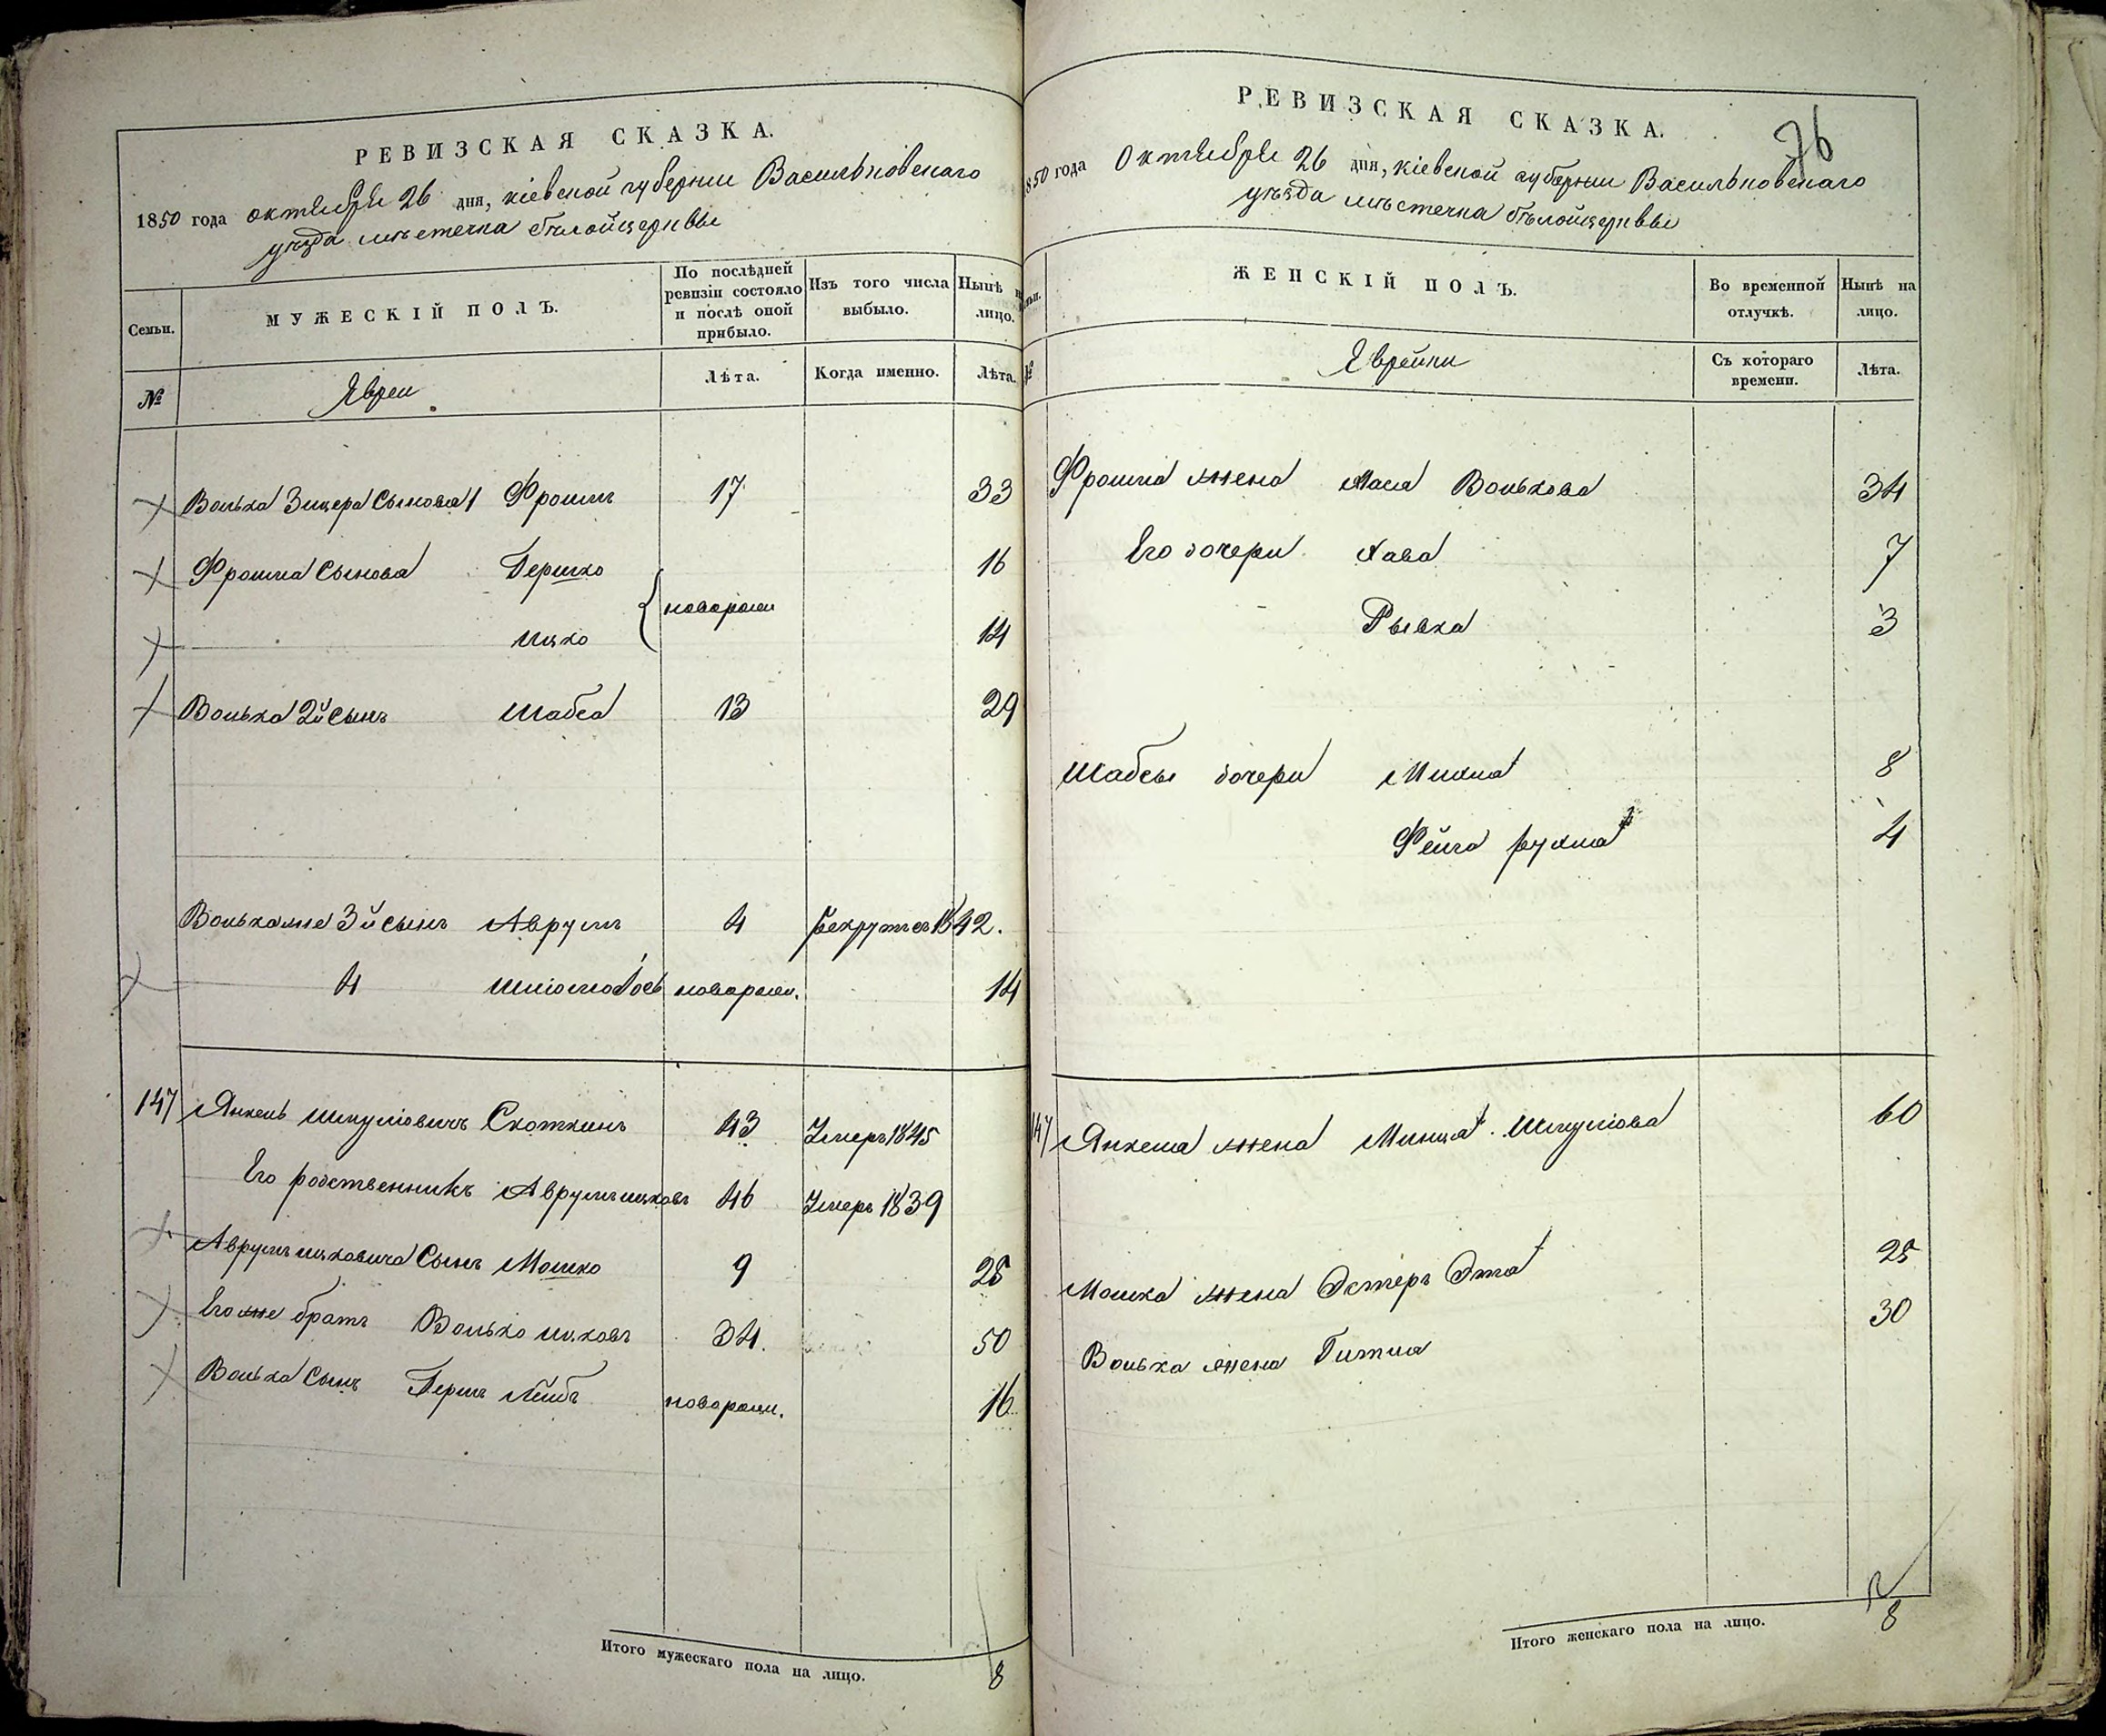 РЕВИЗСКАЯ СКАЗКА.
1850 года октября 26 дня, кіевской губерніи Васильковскаго
уѣзда мѣстечка бѣлойцеркви
Семьи. МУЖЕСКІЙ ПОЛЪ. По послѣдней ревизіи состояло и послѣ оной прибыло. Изъ того числа выбыло. Нынѣ на лицо.
№ Евреи Лѣта. Когда именно. Лѣта.
Волька Зицера Сыновья 1 Фроимъ 17 33
Фроима Сыновья Гершко новорожд 16
Ицко 14
Волька 2й Сынъ Шабса 13 29
Волька же 3й сынъ Аврумъ 4 рекрутъ въ 1842.
4 Шліома новорожд. 14
147 Янкель Шмуліовичъ Скоткинъ 43 Умеръ 1845
Его родственникъ Аврумъ ицковъ 46 Умеръ 1839
Аврумъ ицковича Сынъ Мошко 9 25
Его же братъ Волько ицковъ 34. 50
Волька Сынъ Герш Лейбъ новорожд. 16
Итого мужескаго пола на лицо. 8
76
РЕВИЗСКАЯ СКАЗКА.
1850 года Октября 26 дня, кіевской губерніи Васильковскаго
уѣзда мѣстечка бѣлойцеркви
Семьи. ЖЕНСКІЙ ПОЛЪ. Во временной отлучкѣ. Нынѣ на лицо.
№ Еврейки Съ котораго времени. Лѣта.
Фроима жена Хася Волькова 34
Его дочери Хава 7
Рывка 3
Шабсы дочери Михля 8
Фейга рухля 4
147 Янкеля жена Минця Шмуліова 60
Мошка жена Эстеръ Эта 25
Волька жена Гитля 30
Итого женскаго пола на лицо. 8